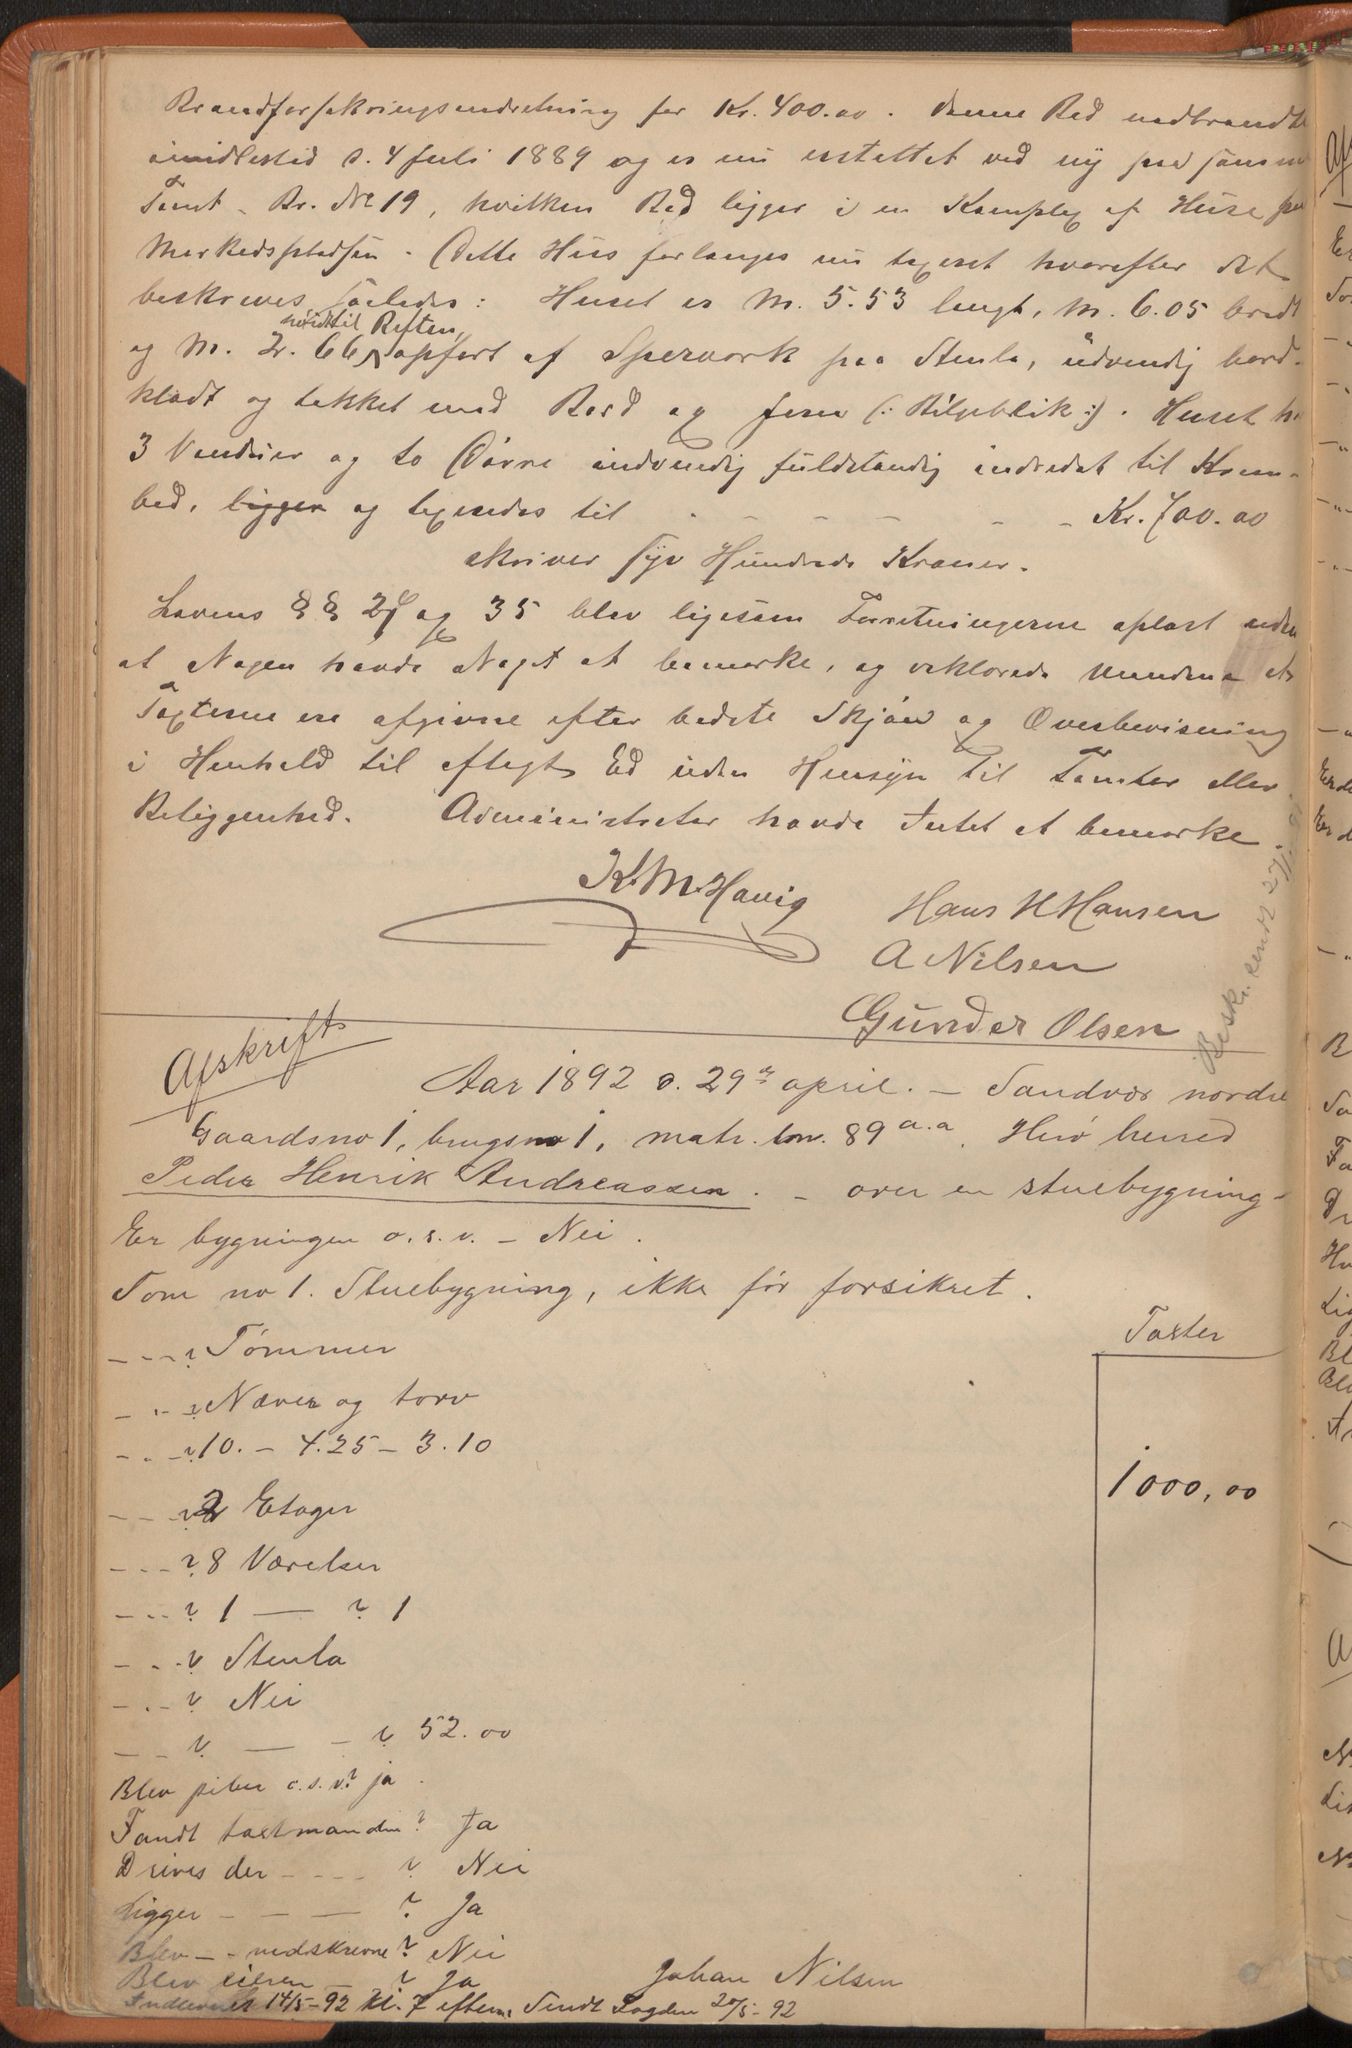 Brandforsikringsindretning for Kr. 400.00. Denne Bod nedbrandte
imidlertid d. 4 Juli 1889 og er nu erstattet ved ny paa samme
Tomt - Br. № 19, hvilken Bod ligger i en Komplex af Huse paa
Markedspladsen. Dette Hus forlanges nu taxeret hvorefter det
beskrives saaledes: Huset er M. 5.53 langt, M. 6.05 bredt
høidt til Røften,
og M. 2.66 opført af Sperværk paa Stenla, udvendig bord-
klædt og tækket med Bord og Jern (: Bølgeblik :). Huset har
3 Vinduer og to Dørre indvendig fuldstændig indredet til Kram-
bod, ligger og taxeredes til - - - - - - Kr. 700.00
skriver Syv Hundrede Kroner.
Lovens §§ 24 og 35 blev ligesom Forretningerne oplæst uden
at Nogen havde Noget at bemærke, og erklærede Mændene at
Taxterne ere afgivne efter bedste Skjøn og Overbevisning
i Henhold til aflagt Ed uden Hensyn til Tomter eller
Beliggenhed. Administrator havde Intet at bemærke.
K. M. Havig Hans H Hansen
A Nilsen
Gunder Olsen
Beskr. sendt 27/
Afskrift
Aar 1892 d. 29de april. - Sandvær nordre
Gaardsno 1, brugsno 1, matr. lnr. 89 a.a. Herø herred
Peder Henrik Andreassen. - over en stuebygning -
Er bygningen o.s.v. - Nei.
Som no 1. Stuebygning, ikke før forsikret.
Taxter
- - - ? Tømmer
- - - ? Næver og torv
- - - ? 10. - 4.25 - 3.10
1000,00
- - - ? 2 Etager
- - - ? 8 Værelser
- - - ? 1 — ? 1
- - - ? Stenla
- - - ? Nei
- - ? — - ? 52.00
Blev piber o.s.v.? ja.
Fandt taxtmændene ? Ja
Drives der - - - - ? Nei
Ligger - - — ? Ja
Blev - - nedskrevne ? Nei
Blev eieren - ? Ja Johan Nilsen
Indleveret 14/5-92 kl. 7 efterm. Sendt Fogden 20/5-92